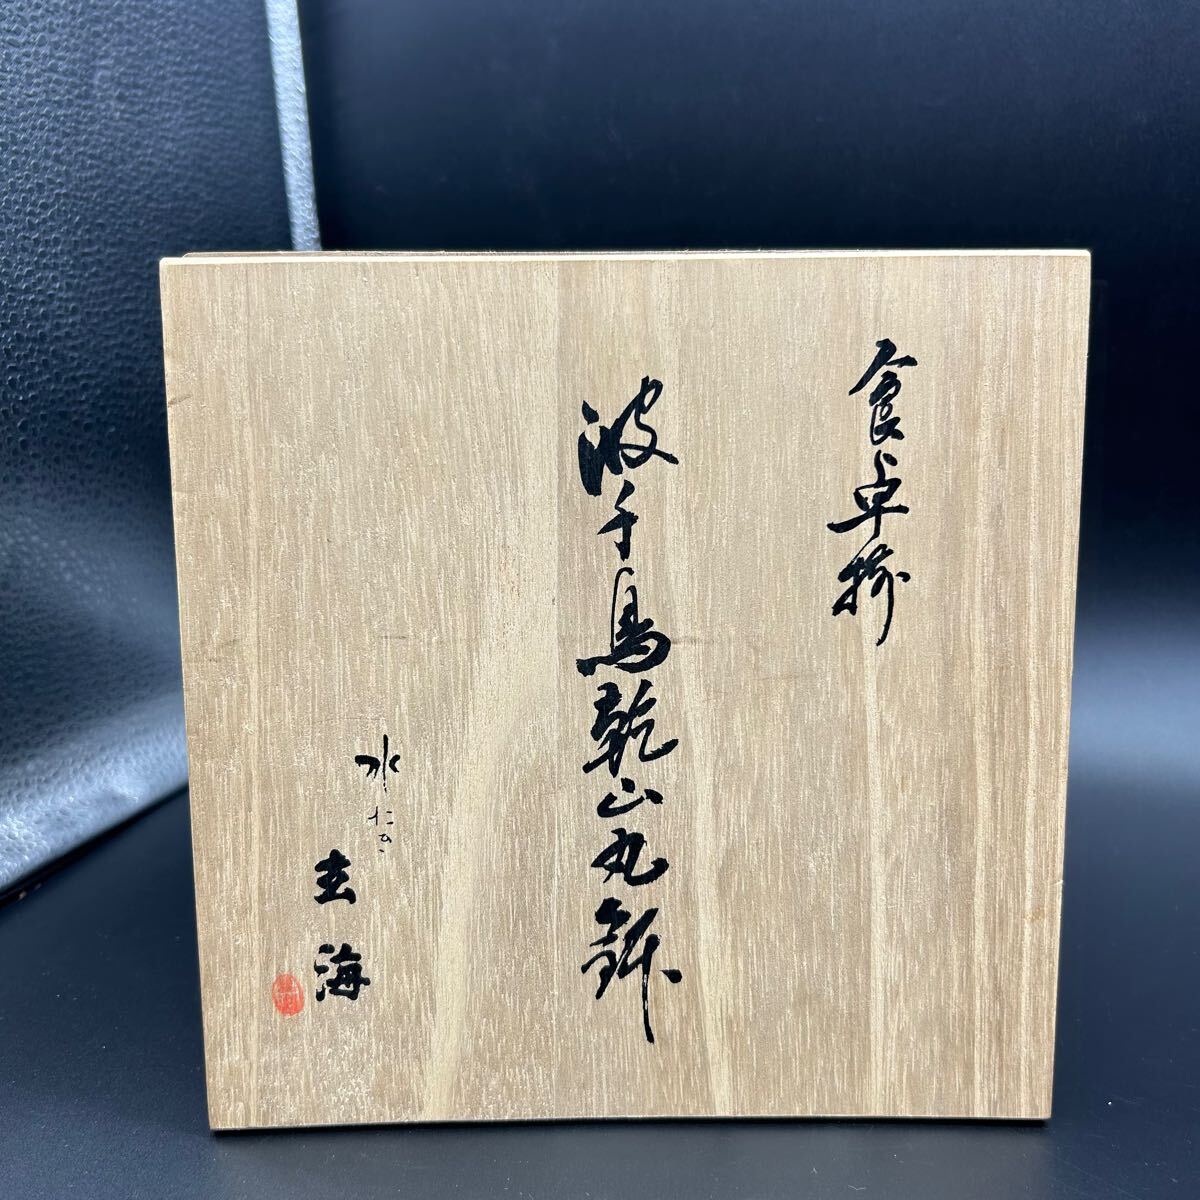 食卓揃
波千鳥乾山丸鉢
水たき
玄海